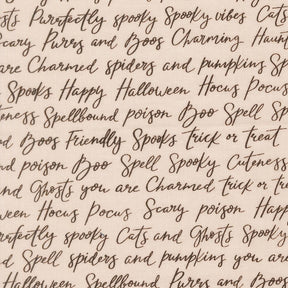 sts Purrfectly spooky Spooky vibes Cats
Scary Purrs and Boos Charming Haunt
are Charmed spiders and pumpkins Sp
Spooks Happy Halloween Hocus Pocus
teness Spellbound poison Boo Spell Sp
d Boos Friendly Spooks trick or treat
nd poison Boo Spell Spooky Cuteness
and Ghosts you are Charmed trick or tre
ween Hocus Pocus Scary poison Happ
rrfectly spooky Cats and Ghosts Spooky
Spell spiders and pumpkins you are
Halloween Spellbound Purrs and Boos